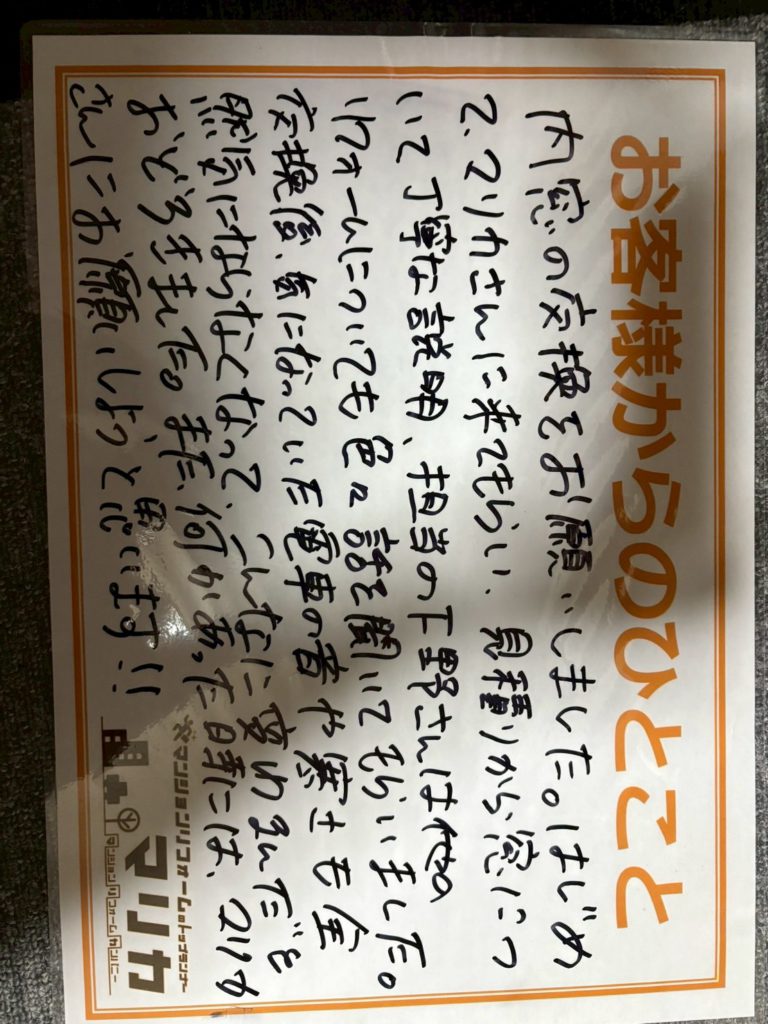 お客様からのひとこと
内窓の交換をお願いしました。はじめ
て、マリカさんに来てもらい、見積りから窓につ
いて丁寧な説明、担当の下野さんは他の
リフォームについても色々話を聞いてもらいました。
交換後、気になっていた電車の音や寒さも全
然気にならなくなって、こんなに変わるんだと
おどろきました。また、何かあった時には、マリカ
さんにお願いしようと思います!!
マンションリフォームのトップランナー
マリカ
マンションリフォームカンパニー